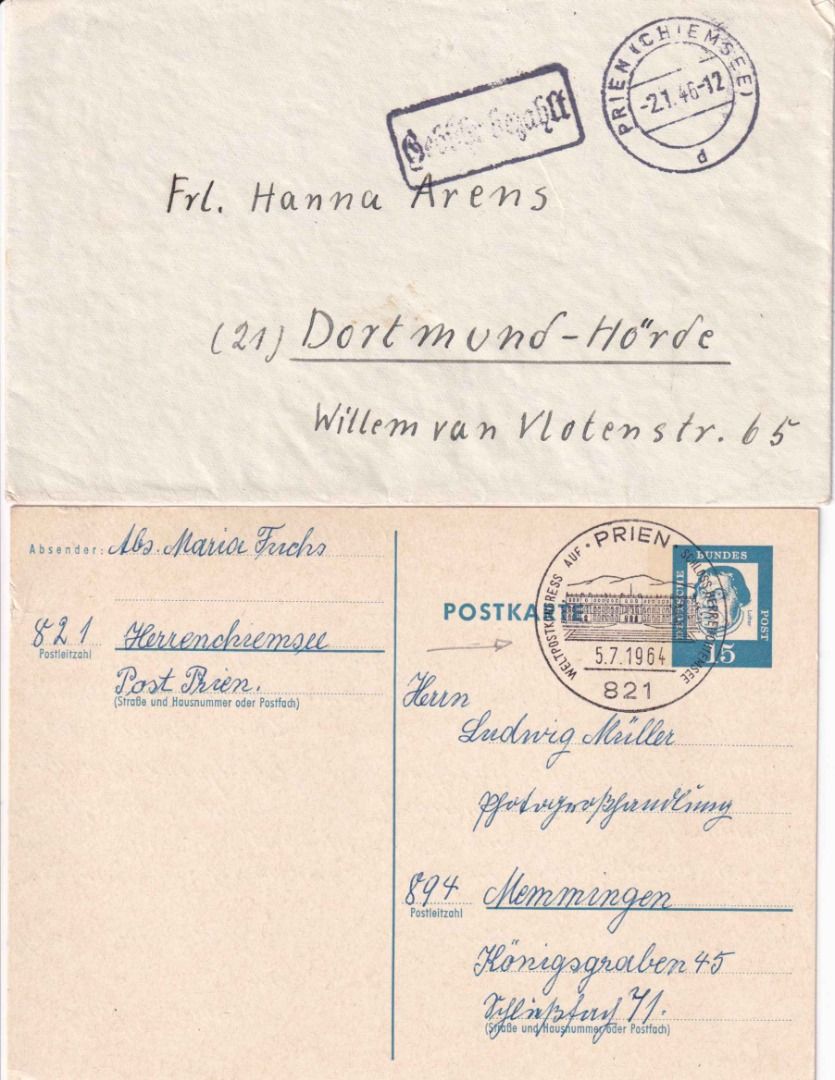 PRIEN (CHIEMSEE)
-2.1.46-12
d
Gebühr bezahlt
Frl. Hanna Arens
(21) Dortmund-Hörde
Willem van Vlotenstr. 65
Absender: Abs. Maria Fuchs
821 Herrenchiemsee
Postleitzahl
Post Prien.
(Straße und Hausnummer oder Postfach)
POSTKARTE
WELTPOSTKONGRESS AUF · PRIEN · SCHLOSS HERRENCHIEMSEE
5.7.1964
821
DEUTSCHE BUNDES POST
Luther
15
Herrn
Ludwig Müller
Photogroßhandlung
894 Memmingen
Postleitzahl
Königsgraben 45
Schließfach 71.
(Straße und Hausnummer oder Postfach)